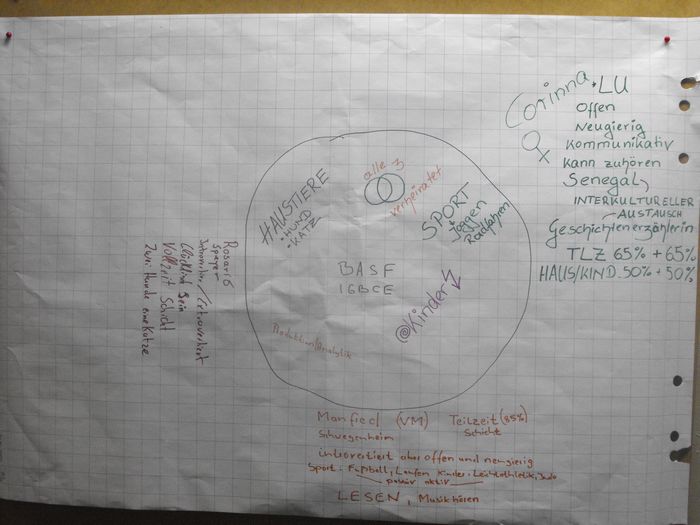 Corinna, LU
Offen
Neugierig
Kommunikativ
Kann zuhören
Senegal
INTERKULTURELLER
AUSTAUSCH
Geschichtenerzählerin
TLZ 65% + 65%
HAUS/KIND 50% + 50%
alle 3
verheiratet
HAUSTIERE
• HUND
• KATZE
SPORT
Joggen
Radfahren
BASF
IGBCE
Kinder
Produktion/Analytik
Rosario
Speyer
Introvertiert/Extrovertiert
Glücklich Sein
Vollzeit Schicht
Zwei Hunde eine Katze
Manfred (VM) Teilzeit (85%)
Schwegenheim Schicht
introvertiert aber offen und neugierig
Sport: Fußball, Laufen Kinder: Leichtathletik, Judo
passiv aktiv
LESEN, Musikhören